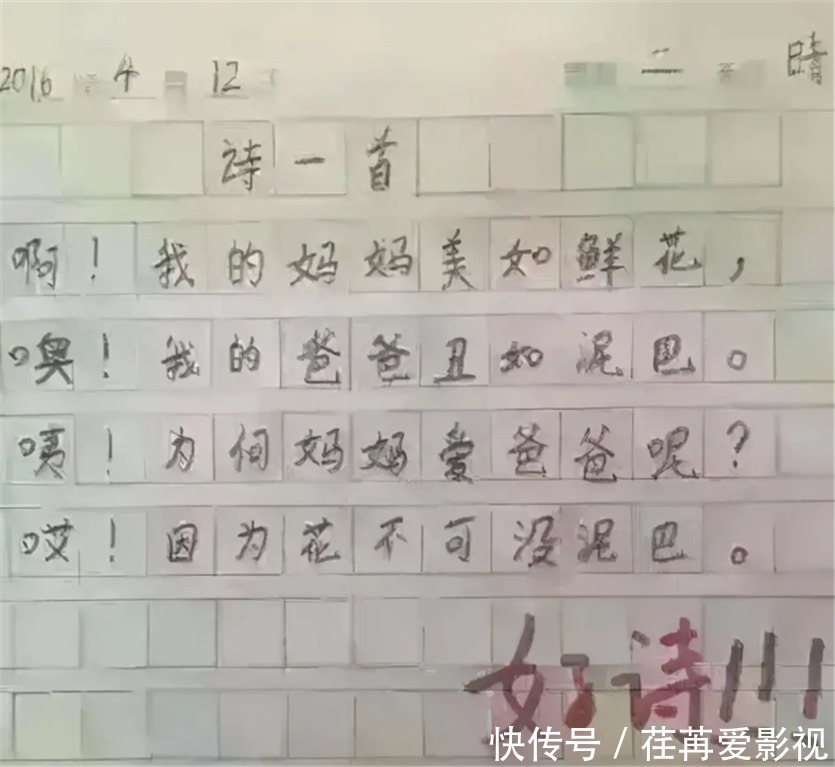 2016 4 12 二 晴
诗一首
啊！我的妈妈美如鲜花，
噢！我的爸爸丑如泥巴。
咦！为何妈妈爱爸爸呢？
哎！因为花不可没泥巴。
好诗!!!
快传号/荏苒爱影视